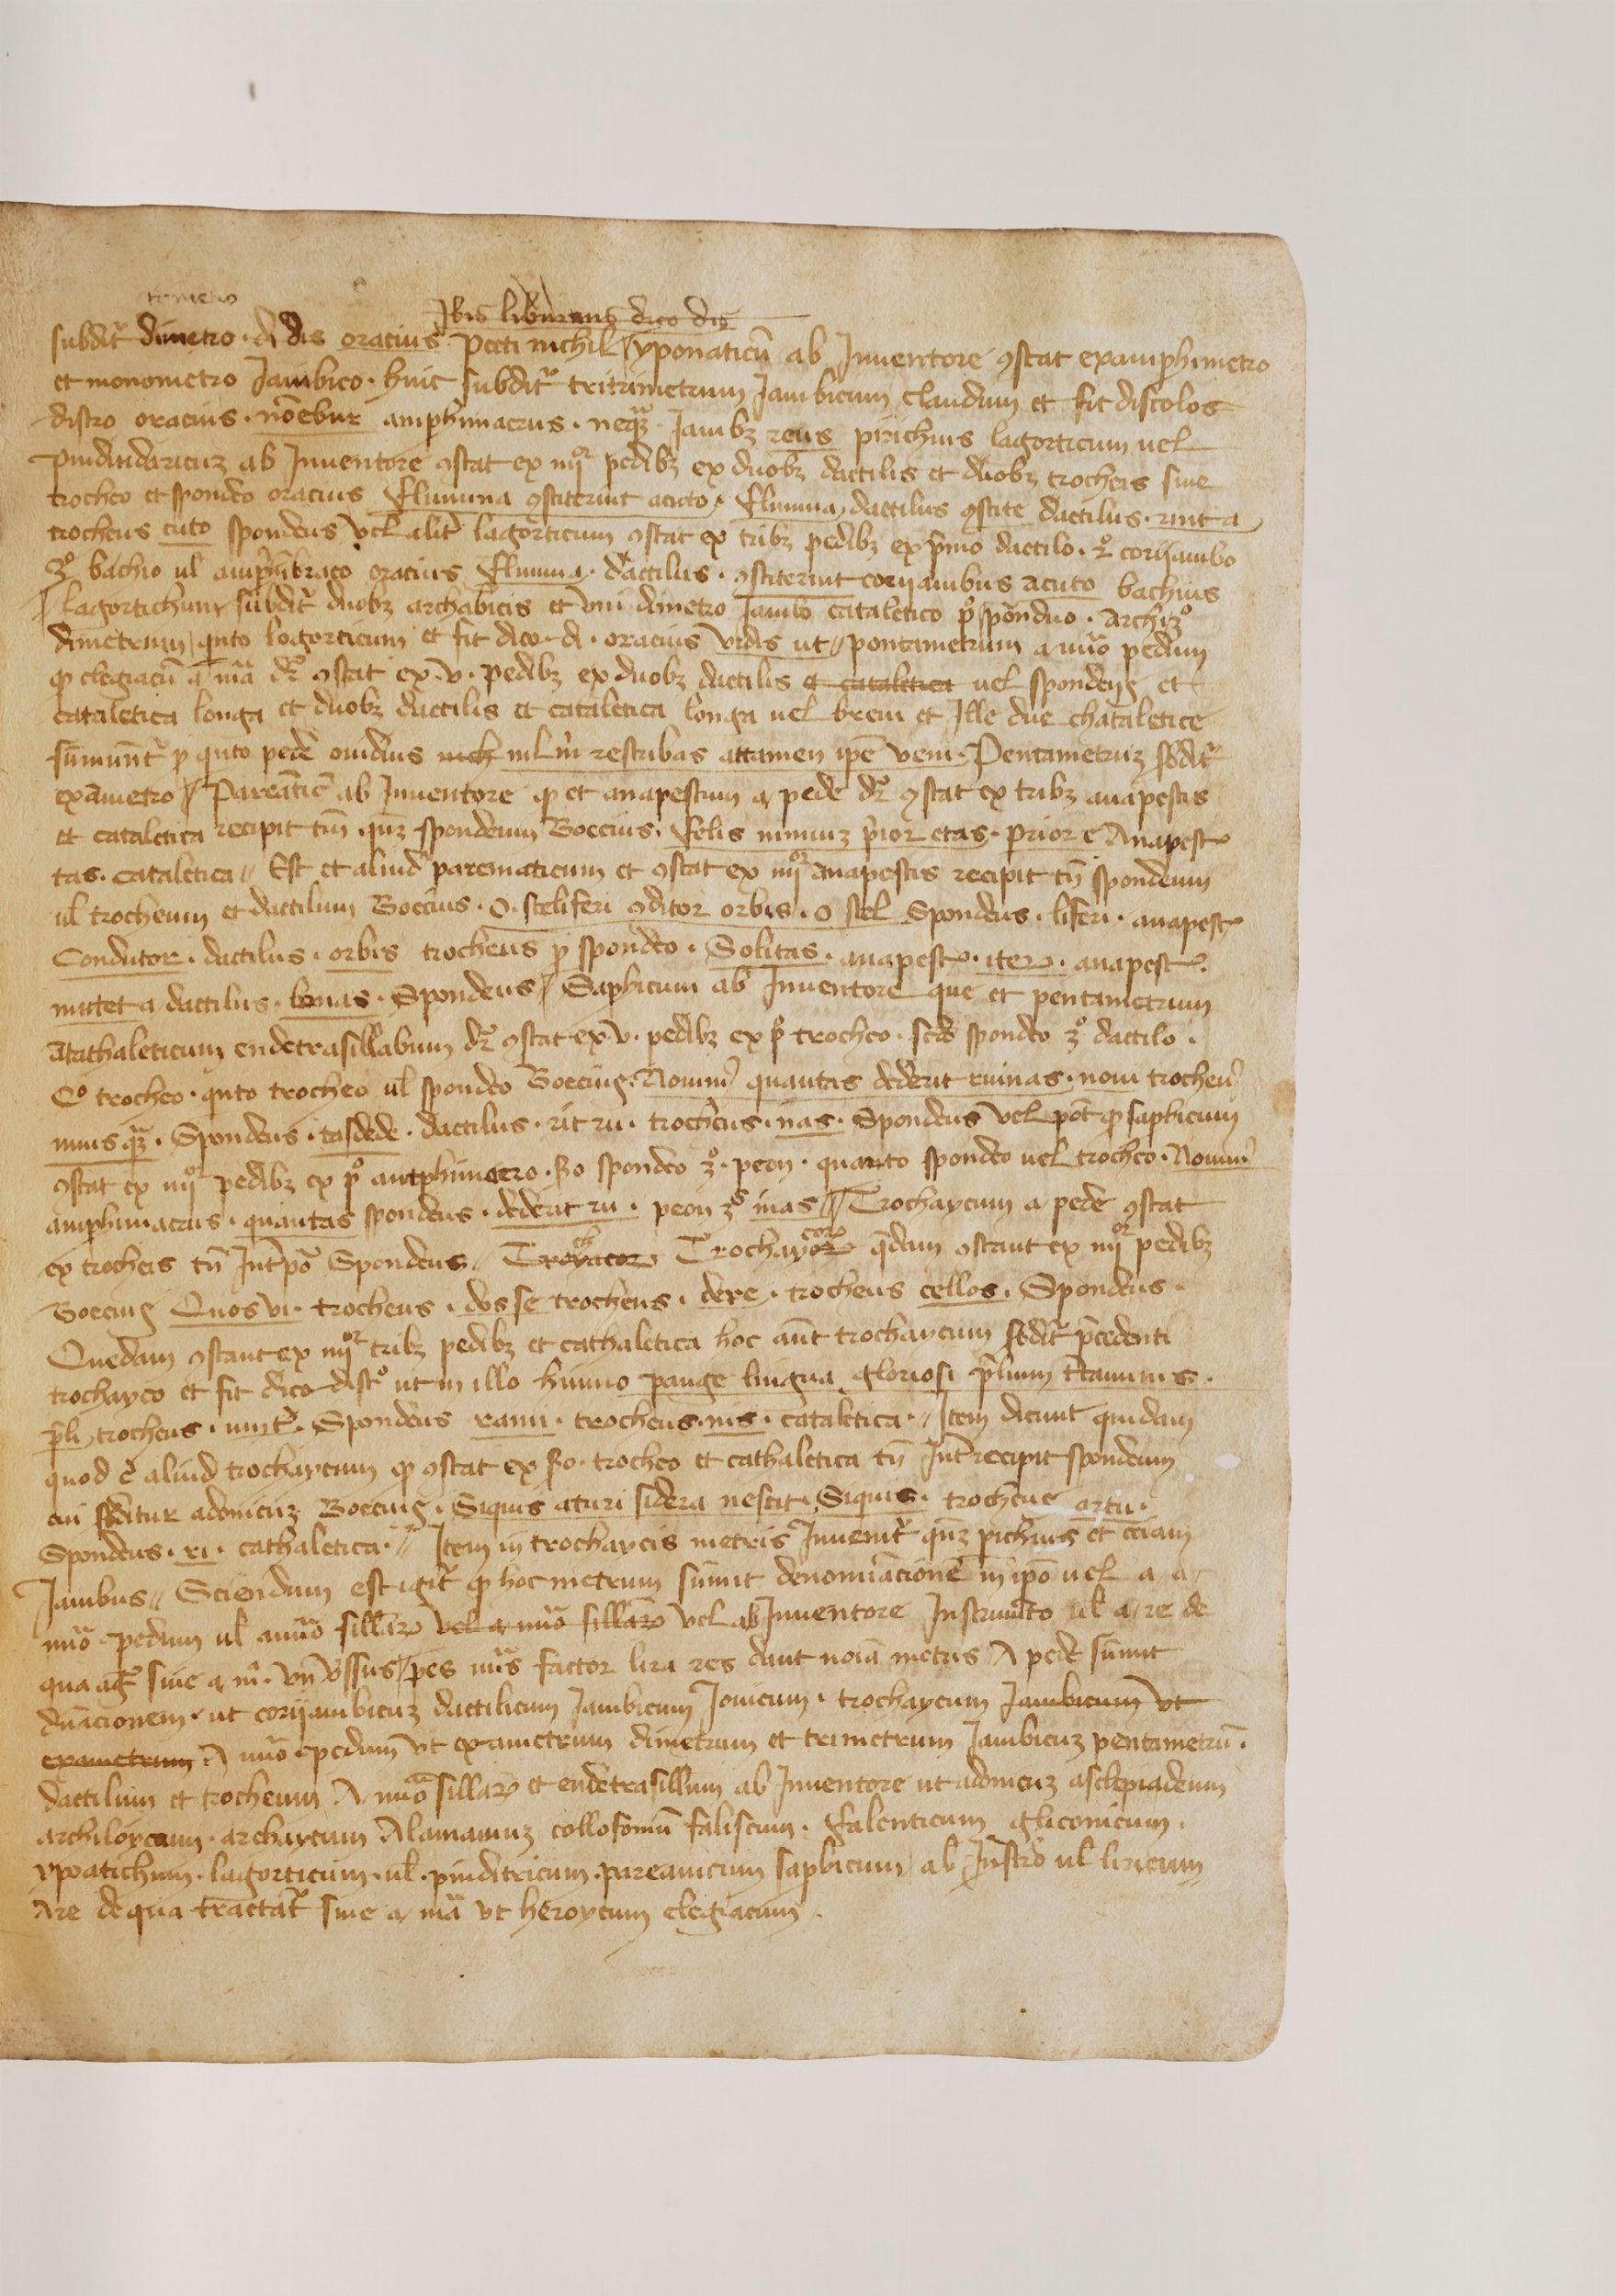 trimetro
Ibis liburnis dico dis
subdit᷑ dimetro · di dis oracius Pecti nichil // yponaticū ab Inuentore ꝯstat examphimetro
et monometro Iambico · huic subdit᷑ tritrimetrum Iambicum claudum et fit discolos
distro oracius · nō ebur amphimacrus · neqꝫ · Iambꝫ reus pirichius lagorticum uel
pindaricuꝫ ab Inuentore ꝯstat ex iiijor pedibꝫ ex duobꝫ dactilis et duobꝫ trocheis siue
trocheo et spondeo oracius fflumina ꝯstiterint acuto · fflumina dactilus ꝯstite dactilus · rint a
trocheus cuto spondeus vel alit᷑ lagorticum ꝯstat ex tribꝫ pedibꝫ ex p̄mo dactilo · 2o corijambo
3o bachio ul amphibraco oracius fflumina · dactilus · ꝯstiterint corijambus acuto bachius
// lagortichum subdit᷑ duobꝫ archabicis et vni dimetro Iambo cataletico
dimetrum qnto logorticum et fit dico · di · oracius vides ut // pentametrum a nūo pedum
ꝙ elegiacū a mā dr̄ ꝯstat ex · v · pedibꝫ ex duobꝫ dactilis et cataletica uel spondeis et
cataletica longa et duobꝫ dactilis et cataletica longa uel breui et Ille due chataletice
sumunt᷑ p qnto pede ouidius nich nil m̄ rescribas attamen ipē veni · Pentametruꝫ sbdit᷑
exāmetro // Pareātic̄ ab Inuentore ꝙ et anapestum a pede dr̄ ꝯstat ex tribꝫ anapestis
et cataletica recipit tn̄ qn̄ꝫ spondeum Boecius · ffelix nimiuꝫ prior etas · prior e Anapest᷑
tas · cataletica // Est et aliud paremiaticum et ꝯstat ex iiijor anapestis recipit tn̄ spondeum
ul trocheum et dactilum Boecius · O · steliferi ꝯditor orbis · o stel Spondeus · liferi · anapest᷑
Conditor · dactilus · orbis trocheus p spondeo · Solitas · anapest᷑ · iter · anapest᷑
mittet a dactilus · bonas · Spondeus // Saphicum ab Inuentore que et pentametrum
Atathaleticum endetrasillabum dr̄ ꝯstat ex · v · pedibꝫ ex pō trocheo · scdō spondeo 3o dactilo ·
4o trocheo · qnto trocheo ul spondeo Boecius · Nouim᷒ quantas dederit ruinas · noui trocheu᷒
mus qꝫ · Spondeus · tas dede · dactilus · rit ru · trocheus · nas · Spondeus vel pōt ꝙ saphicum
ꝯstat ex iiijor pedibꝫ ex pō amphimacro · 2o spondeo 3o · peon · quarto spondeo uel trocheo · Nouim᷒
amphimacrus · quantas spondeus · dederit ru · peon 3s inas // Trochaycum a pede ꝯstat
ex trocheis tn̄ Int̄pō Spondeus // Troyacor Trochaycor qdam ꝯstant ex iiijor pedibꝫ
Boecius Quos vi · trocheus · dos se trocheus · dere · trocheus cellos · Spondeus ·
Quedam ꝯstant ex iiijor tribꝫ pedibꝫ et cathaletica hoc aūt trochaycum sbdit᷑ p̄cedenti
trochayco et fit dico distro ut in illo himno pange lingua gloriosi p̄lium
p̄li trocheus · Spondeus · trocheus · nis · cataletica · // Item dicunt quidam
quod ē aliud trochaycum ꝙ ꝯstat ex 2o · trocheo et cathaletica tn̄ Int̄recipit spondeum
cui sbditur adonicuꝫ Boecius · Siquis arturi sidera nescit · Siquis · trocheus artu ·
Spondeus · ri · cathaletica · // Item in trochaycis metris Inuenit᷑ qn̄ꝫ pichius et eciam
Iambus // Sciendum est igit᷑ ꝙ hoc metrum sumit denomīacionē in ipō uel a a
nūo pedum ul anūo sillar᷑ vel a nūo sillar᷑ vel ab Inuentore Instrumēto ul a re de
qua agr̄ siue a m̄ · vn̄ v̄ssus // pes nūs factor lira res dant noīa metris A pede sumit
dn̄acionem · ut corijambicuꝫ dactilicum Iambicum Ionicum · trochaycum Iambicum vt
exametrum A nūo pedum vt exrametrum dimetrum et trimetrum Iambicuꝫ pentametrū ·
dactilum et trocheum A nūo sillar᷑ et endetrasillum ab Inuentore ut adonicuꝫ asclepiadeum
archiloycum · archaycum Alamanuꝫ collofomū faliscum · ffalenticum gliconicum ·
ypoatichum · lagorticum · ul · pinditricum · pareanicum saphicum ab Instrō ul liricum
Are de qua tractat᷑ siue a mā vt heroycum elegiacum ·